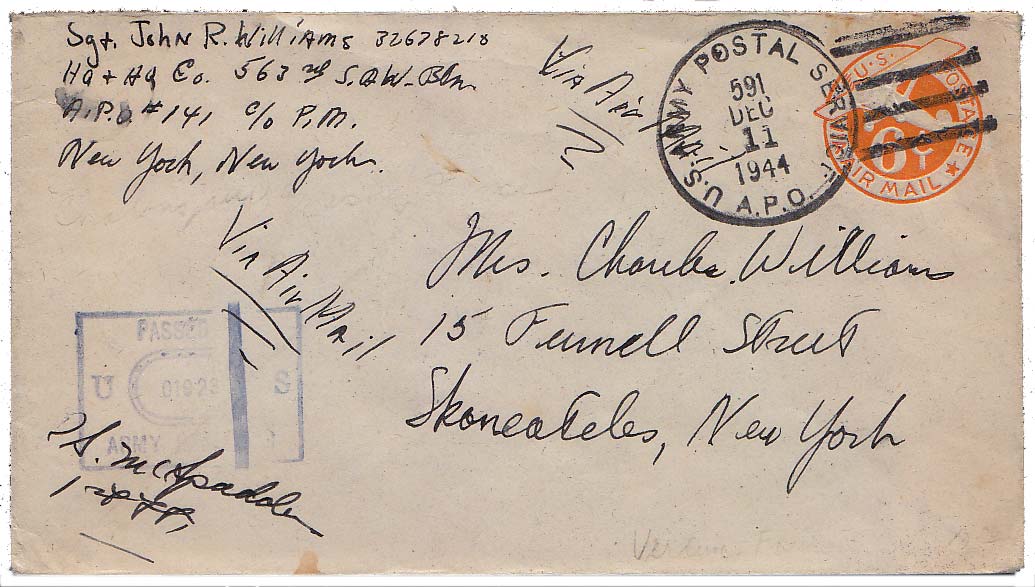 Sgt. John R. Williams 32678218
Hq + Hq Co. 563rd S.A.W. Btn
A.P.O #141 c/o P.M.
New York, New York.
Via Air
U.S. ARMY POSTAL SERVICE
591
DEC
11
1944
A.P.O.
U.S. POSTAGE
6¢
AIR MAIL
Via Air Mail
Mrs. Charles Williams
15 Fennell Street
Skaneateles, New York
PASSED
U S
ARMY
McSpadden